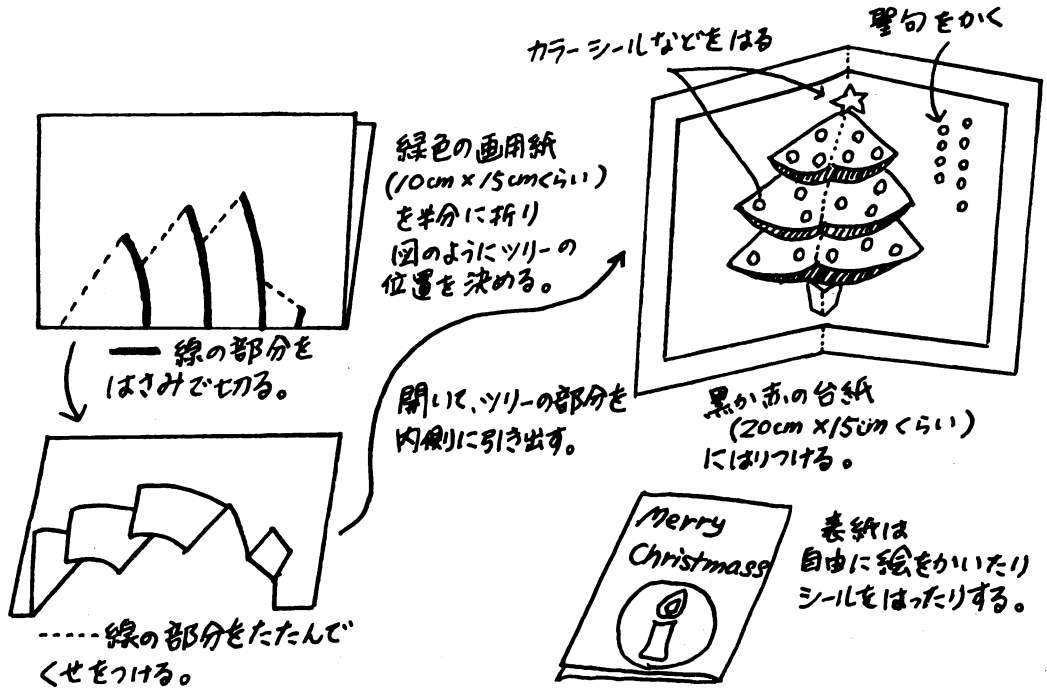 緑色の画用紙
(10cm×15cmくらい)
を半分に折り
図のようにツリーの
位置を決める。
━━ 線の部分を
はさみで切る。
-----線の部分をたたんで
くせをつける。
開いて、ツリーの部分を
内側に引き出す。
カラーシールなどをはる
聖句をかく
黒か赤の台紙
(20cm×15cmくらい)
にはりつける。
Merry
Christmass
表紙は
自由に絵をかいたり
シールをはったりする。